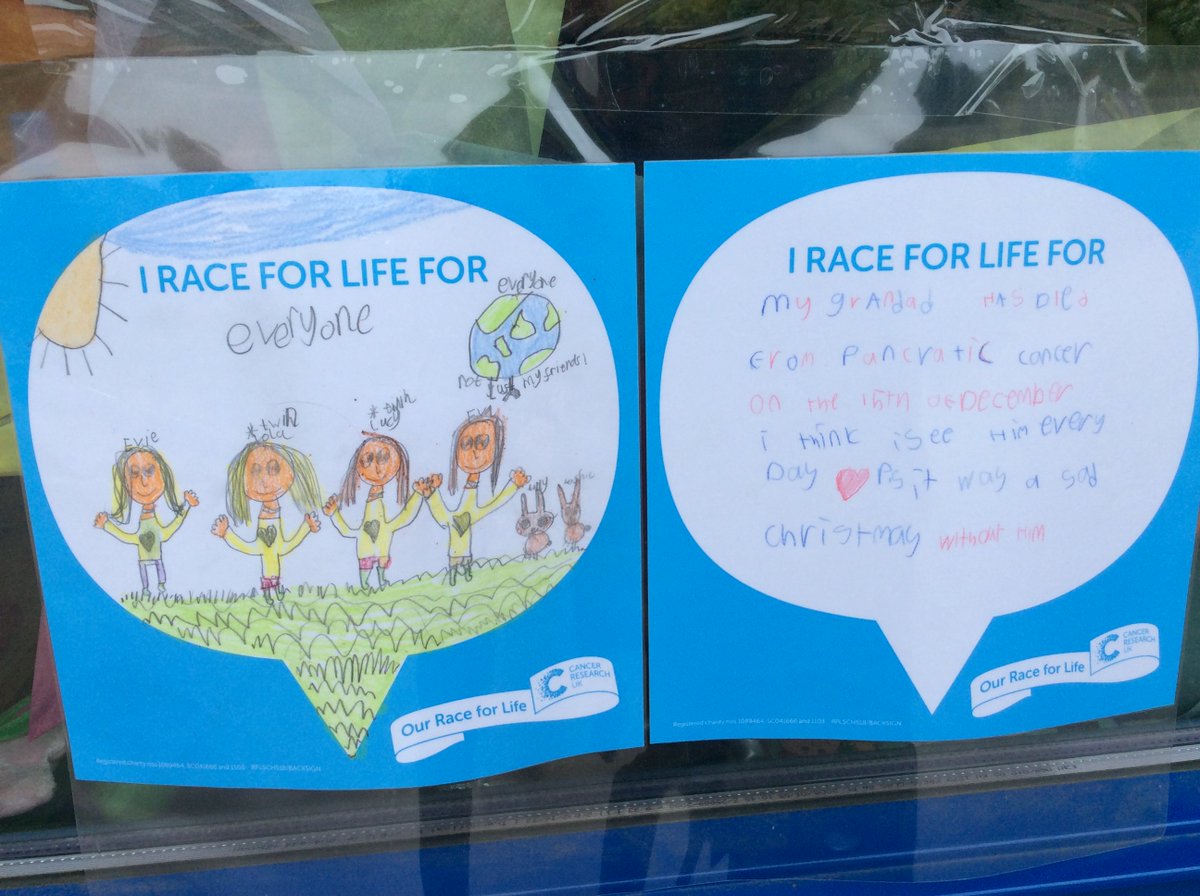 I RACE FOR LIFE FOR
everyone
everyone
not just my friends!
Evie
*twin
Lola
*twin
Lucy
our Race for Life
CANCER
RESEARCH
UK
I RACE FOR LIFE FOR
my grandad HAS Died
From Pancratic cancer
on the 15th of December
i think i see Him every
Day ❤ Ps it way a sad
christmay without Him
Our Race for Life
CANCER
RESEARCH
UK